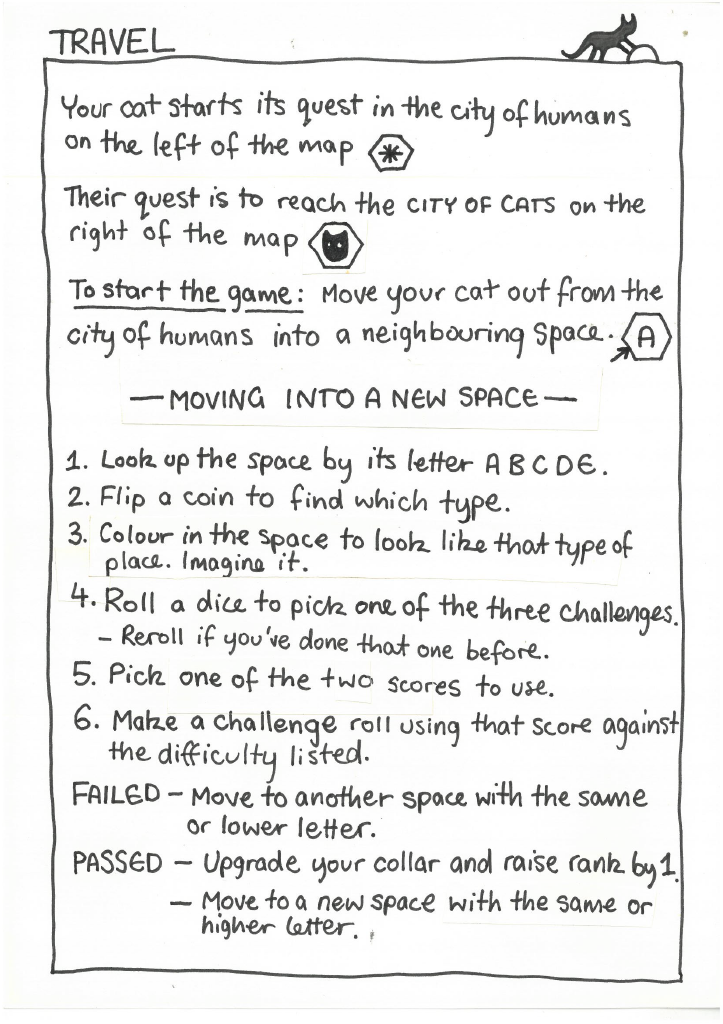 TRAVEL
Your cat starts its quest in the city of humans
on the left of the map
Their quest is to reach the CITY OF CATS on the
right of the map
To start the game: Move your cat out from the
city of humans into a neighbouring space. A
— MOVING INTO A NEW SPACE —
1. Look up the space by its letter A B C D E.
2. Flip a coin to find which type.
3. Colour in the space to look like that type of
place. Imagine it.
4. Roll a dice to pick one of the three challenges.
- Reroll if you've done that one before.
5. Pick one of the two scores to use.
6. Make a challenge roll using that score against
the difficulty listed.
FAILED - Move to another space with the same
or lower letter.
PASSED - Upgrade your collar and raise rank by 1.
- Move to a new space with the same or
higher letter.